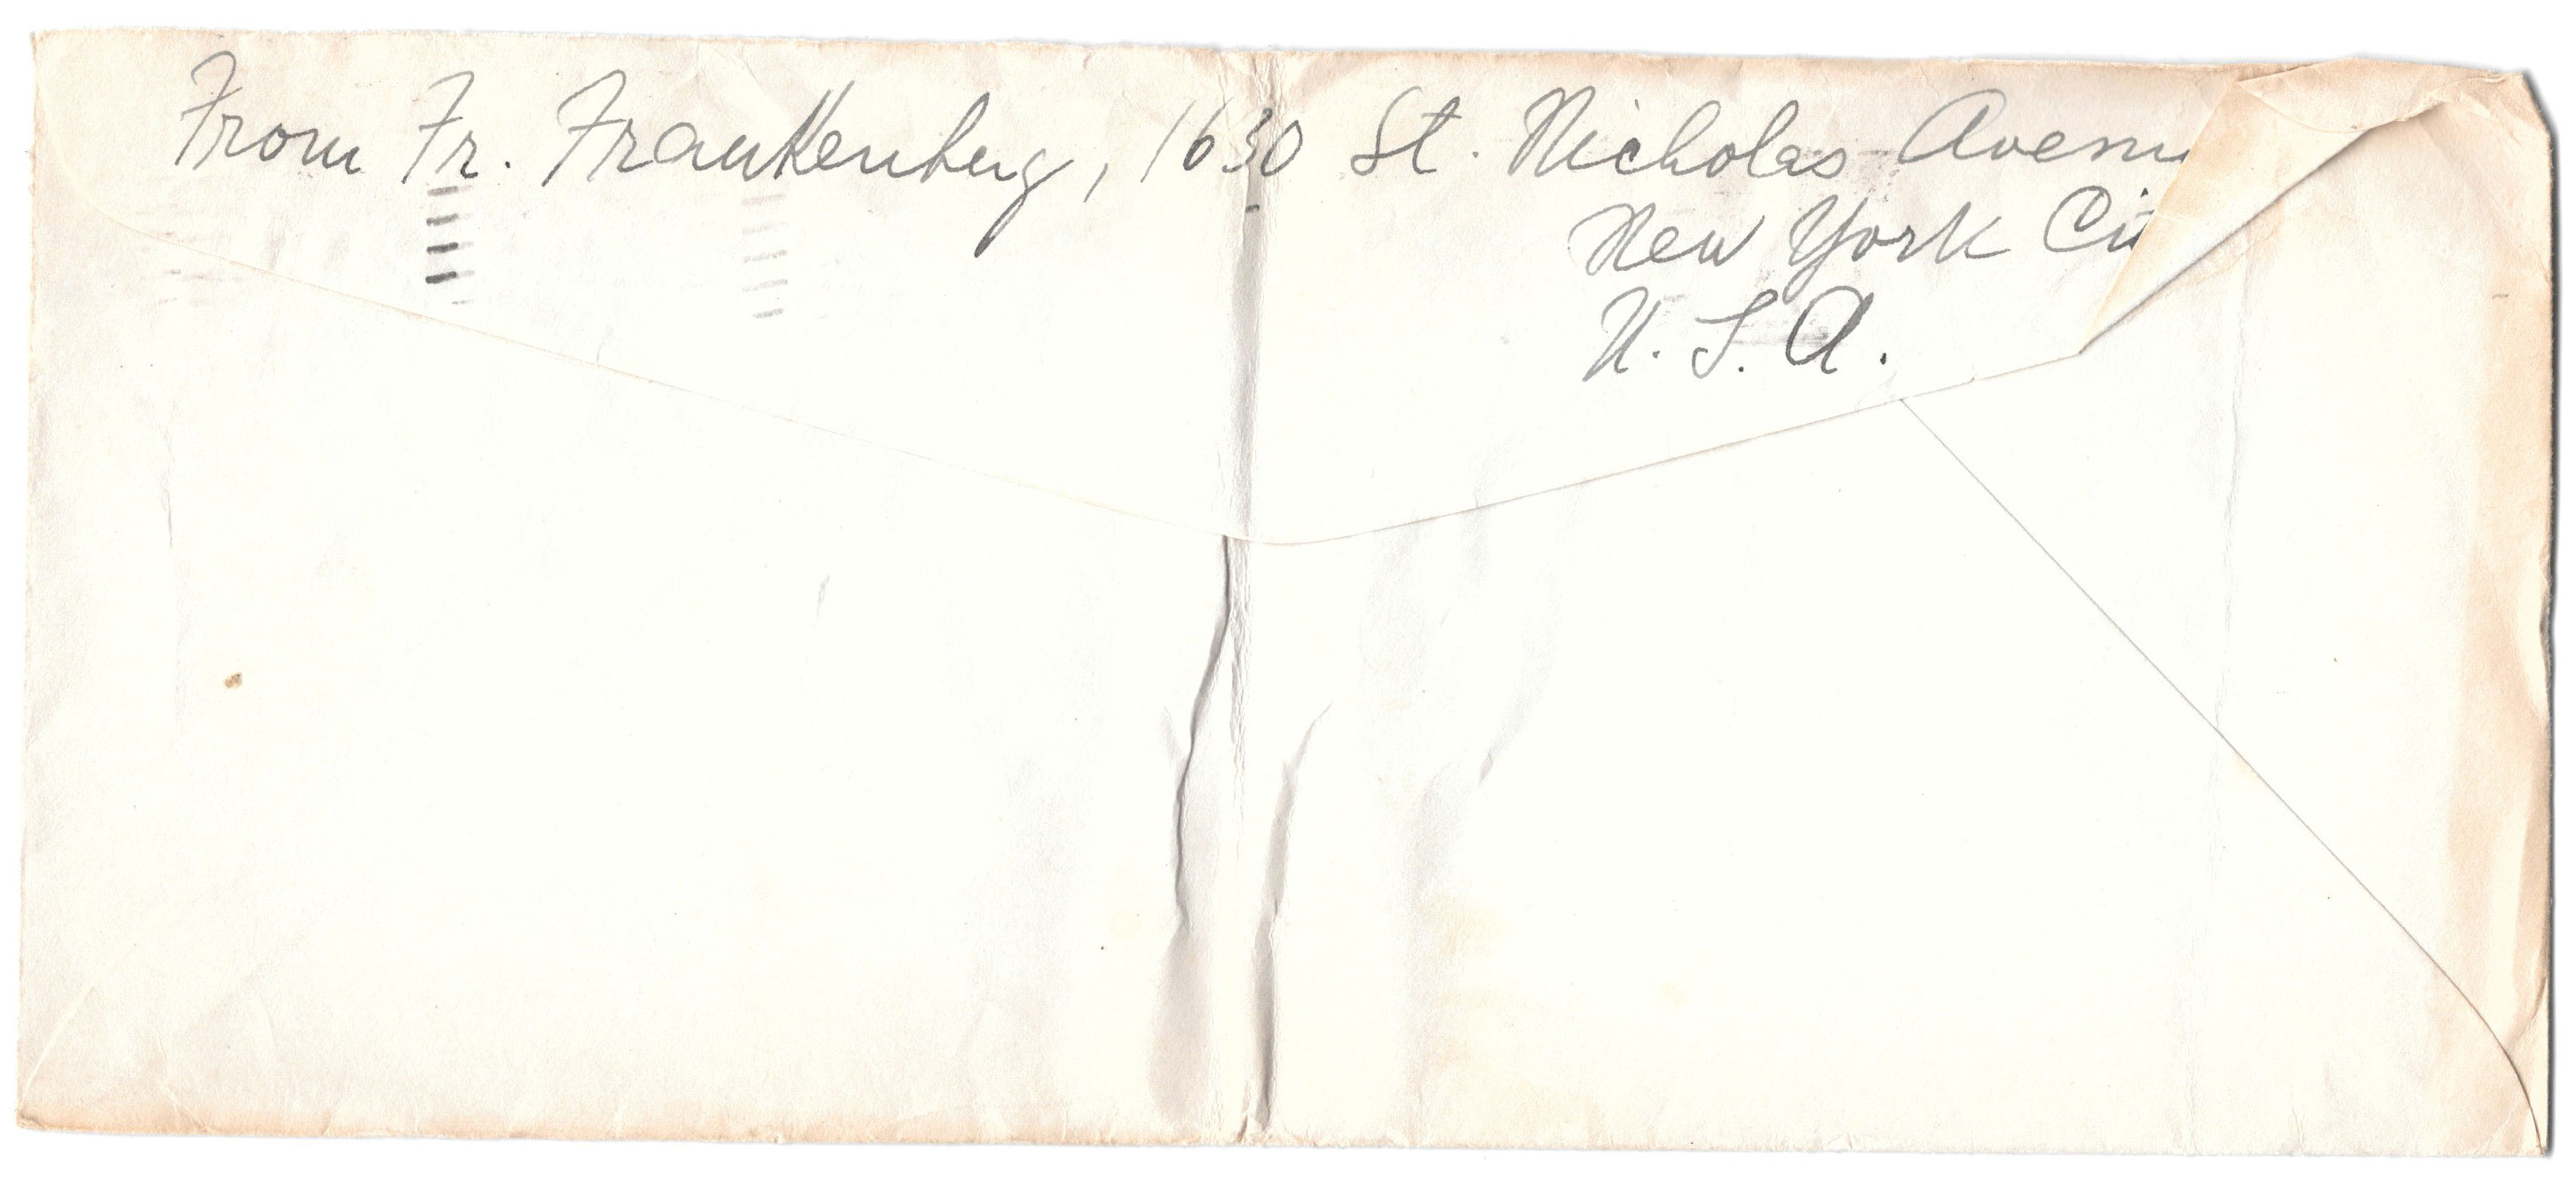 From Fr. Frankenberg, 1630 St. Nicholas Avenu
New York Cit
U. S. A.